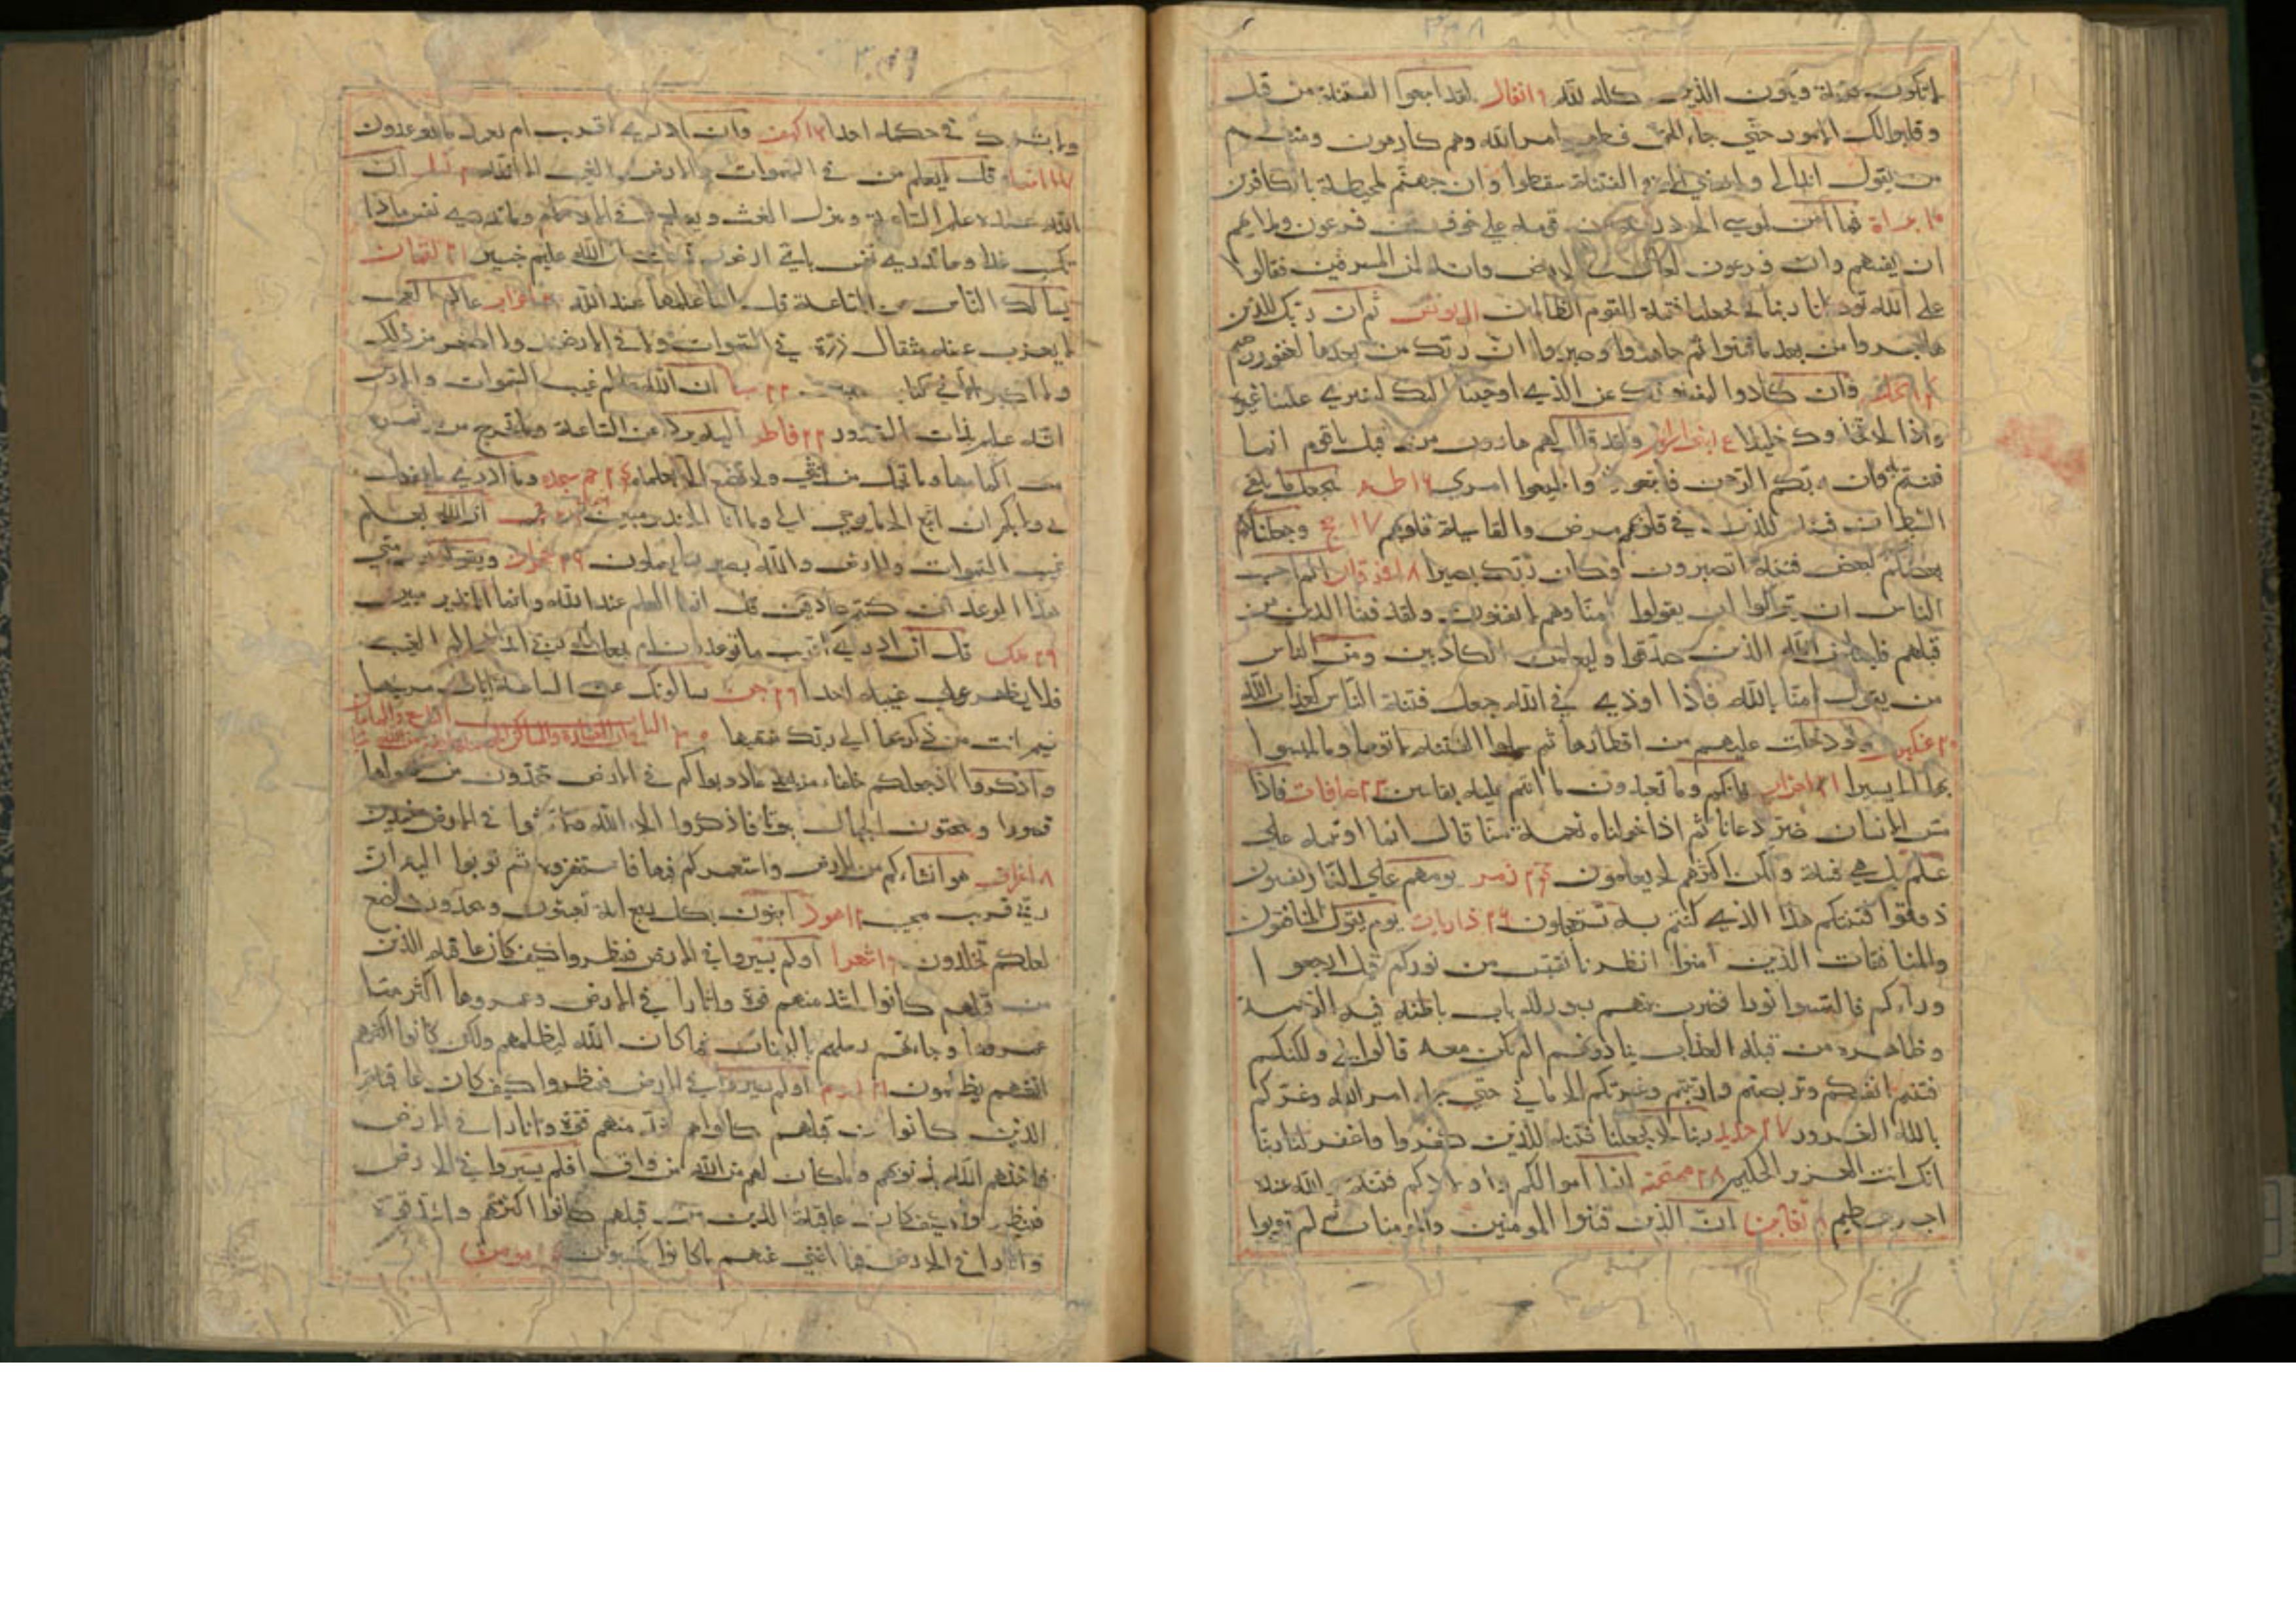 لا تكون فتنة ويكون الدين كله لله ٩ انفال لقد ابتغوا الفتنة من قبل
وقلبوا لك الامور حتي جاء الحق وظهر امر الله وهم كارهون ومنهم
من يقول ائذن لي ولا تفتني الا في الفتنة سقطوا وان جهنم لمحيطة بالكافرين
١٠ براة فما آمن لموسي الا ذرية من قومه علي خوف من فرعون وملائهم
ان يفتنهم وان فرعون لعال في الارض وانه لمن المسرفين فقالوا
علي الله توكلنا ربنا لا تجعلنا فتنة للقوم الظالمين يونس ثم ان ربك للذين
هاجروا من بعد ما فتنوا ثم جاهدوا وصبروا ان ربك من بعدها لغفور رحيم
النحل وان كادوا ليفتنونك عن الذي اوحينا اليك لتفتري علينا غيره
واذا لاتخذوك خليلا ولقد قال لهم هارون من قبل يا قوم انما
فتنتم به وان ربكم الرحمن فاتبعوني واطيعوا امري ١٦ طه ليجعل ما يلقي
الشيطان فتنة للذين في قلوبهم مرض والقاسية قلوبهم ١٧ حج وجعلنا
بعضكم لبعض فتنة اتصبرون وكان ربك بصيرا ١٨ فرقان الم احسب
الناس ان يتركوا ان يقولوا آمنا وهم لا يفتنون ولقد فتنا الذين من
قبلهم فليعلمن الله الذين صدقوا وليعلمن الكاذبين ومن الناس
من يقول امنا بالله فاذا اوذي في الله جعل فتنة الناس كعذاب الله
٢٠ عنكبوت ولو دخلت عليهم من اقطارها ثم سئلوا الفتنة لاتوها وما تلبثوا
بها الا يسيرا ٢١ احزاب فانكم وما تعبدون ما انتم عليه بفاتنين ٢٢ صافات فاذا
مس الانسان ضر دعانا ثم اذا خولناه نعمة منا قال انما اوتيته علي
علم بل هي فتنة ولكن اكثرهم لا يعلمون زمر يوم هم علي النار يفتنون
ذوقوا فتنتكم هذا الذي كنتم به تستعجلون ٢٦ ذاريات يوم يقول المنافقون
والمنافقات للذين آمنوا انظرنا نقتبس من نوركم قيل ارجعوا
وراءكم فالتمسوا نورا فضرب بينهم بسور له باب باطنه فيه الرحمة
وظاهره من قبله العذاب ينادونهم الم نكن معكم قالوا بلي ولكنكم
فتنتم انفسكم وتربصتم وارتبتم وغرتكم الاماني حتي جاء امر الله وغركم
بالله الغرور ٢٧ حديد ربنا لا تجعلنا فتنة للذين كفروا واغفر لنا ربنا
انك انت العزيز الحكيم ٢٨ ممتحنة انما اموالكم واولادكم فتنة والله عنده
اجر عظيم تغابن ان الذين فتنوا المومنين والمومنات ثم لم يتوبوا
ولا يشرك في حكمه احدا كهف وان ادري اقرب ام بعيد ما توعدون
انبيا قل لا يعلم من في السموات والارض الغيب الا الله ان
الله عنده علم الساعة وينزل الغيث ويعلم ما في الارحام وما تدري نفس ماذا
تكسب غدا وما تدري نفس باي ارض تموت ان الله عليم خبير ٢١ لقمان
يسالك الناس عن الساعة قل انما علمها عند الله احزاب عالم الغيب
لا يعزب عنه مثقال ذرة في السموات ولا في الارض ولا اصغر من ذلك
ولا اكبر الا في كتاب مبين ٢٢ سبا ان الله عالم غيب السموات والارض
انه عليم بذات الصدور ٢٢ فاطر اليه يرد علم الساعة وما تخرج من ثمرات
من اكمامها وما تحمل من انثي ولا تضع الا بعلمه حم سجده وما ادري ما يفعل
بي ولا بكم ان اتبع الا ما يوحي الي وما انا الا نذير مبين ان الله يعلم
غيب السموات والارض والله بصير بما تعملون حجرات ويقولون متي
هذا الوعد ان كنتم صادقين قل انما العلم عند الله وانما انا نذير مبين
٢٩ ملك قل ان ادري اقرب ما توعدون ام يجعل له ربي امدا عالم الغيب
فلا يظهر علي غيبه احدا ٢٩ جن يسالونك عن الساعة ايان مرسيها
فيم انت من ذكريها الي ربك منتهيها
واذكروا اذ جعلكم خلفاء من بعد عاد وبواكم في الارض تتخذون من سهولها
قصورا وتنحتون الجبال بيوتا فاذكروا آلاء الله ولا تعثوا في الارض مفسدين
٨ اعراف هو انشاءكم من الارض واستعمركم فيها فاستغفروه ثم توبوا اليه ان
ربي قريب مجيب ١٢ هود اتبنون بكل ريع اية تعبثون وتتخذون مصانع
لعلكم تخلدون شعرا اولم يسيروا في الارض فينظروا كيف كان عاقبة الذين
من قبلهم كانوا اشد منهم قوة واثاروا في الارض وعمروها اكثر مما
عمروها وجاءتهم رسلهم بالبينات فما كان الله ليظلمهم ولكن كانوا انفسهم
انفسهم يظلمون ٢١ روم اولم يسيروا في الارض فينظروا كيف كان عاقبة
الذين كانوا من قبلهم كانوا هم اشد منهم قوة واثارا في الارض
فاخذهم الله بذنوبهم وما كان لهم من الله من واق افلم يسيروا في الارض
فينظروا كيف كان عاقبة الذين من قبلهم كانوا اكثر منهم واشد قوة
واثارا في الارض فما اغني عنهم ما كانوا يكسبون مومن